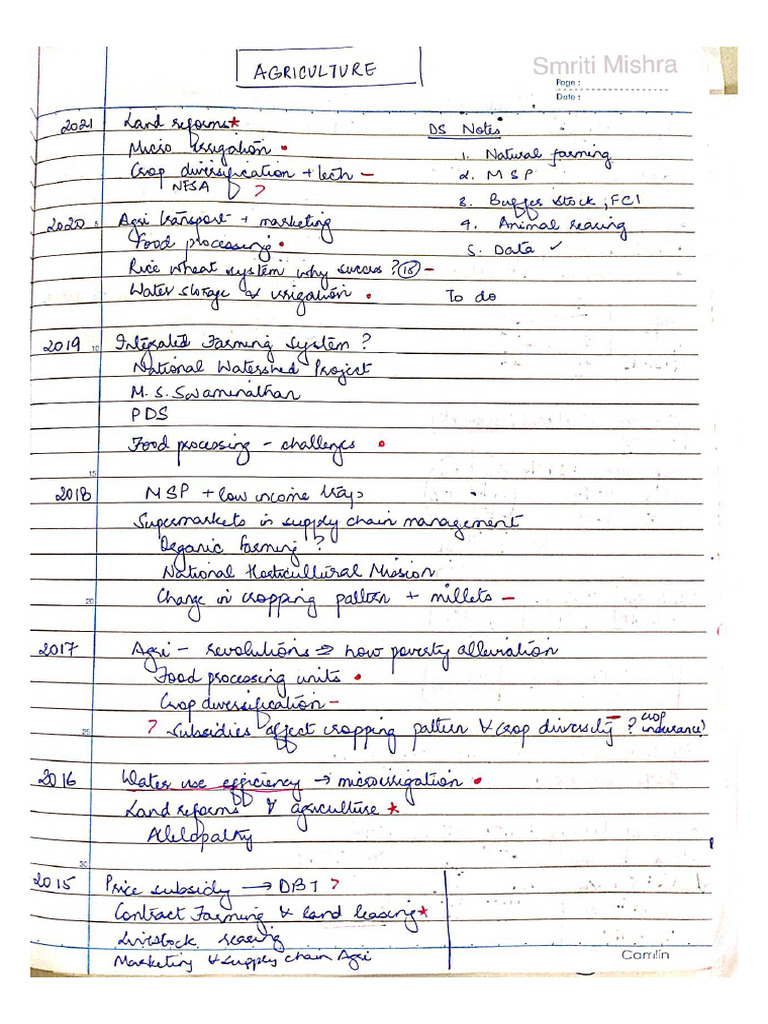 AGRICULTURE
Smriti Mishra
Page :
Date :
2021 Land reforms*
DS Notes
Micro Irrigation •
1. Natural farming
Crop diversification + tech -
2. MSP
NFSA ?
3. Buffer stock, FCI
2020 5 Agri transport + marketing
4. Animal rearing
Food processing •
5. Data ✓
Rice wheat system why success? (18) -
Water storage & irrigation •
To do
2019 10 Integrated Farming System ?
National Watershed Project
M.S. Swaminathan
PDS
Food processing - challenges •
15
2018 MSP + low income trap
Supermarkets in supply chain management
Organic Farming ?
National Horticultural Mission
20 Change in cropping pattern + millets -
2017 Agri - revolutions ⇒ how poverty alleviation
Food processing units •
Crop diversification -
25 ? Subsidies affect cropping pattern & crop diversity ? (crop insurance)
2016 Water use efficiency → microirrigation •
Land reforms & agriculture *
Allelopathy
30
2015 Price subsidy → DBT ?
Contract Farming & land leasing *
Livestock rearing
Marketing & supply chain Agri
Camlin